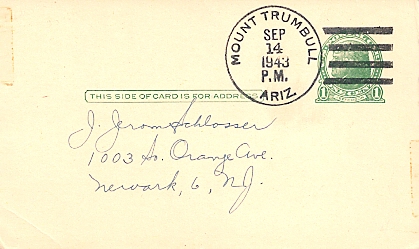 MOUNT TRUMBULL
SEP
14
1943
P.M.
ARIZ.
THIS SIDE OF CARD IS FOR ADDRESS
J. Jerom Schlosser
1003 So. Orange Ave.
Newark, 6, N.J.
1